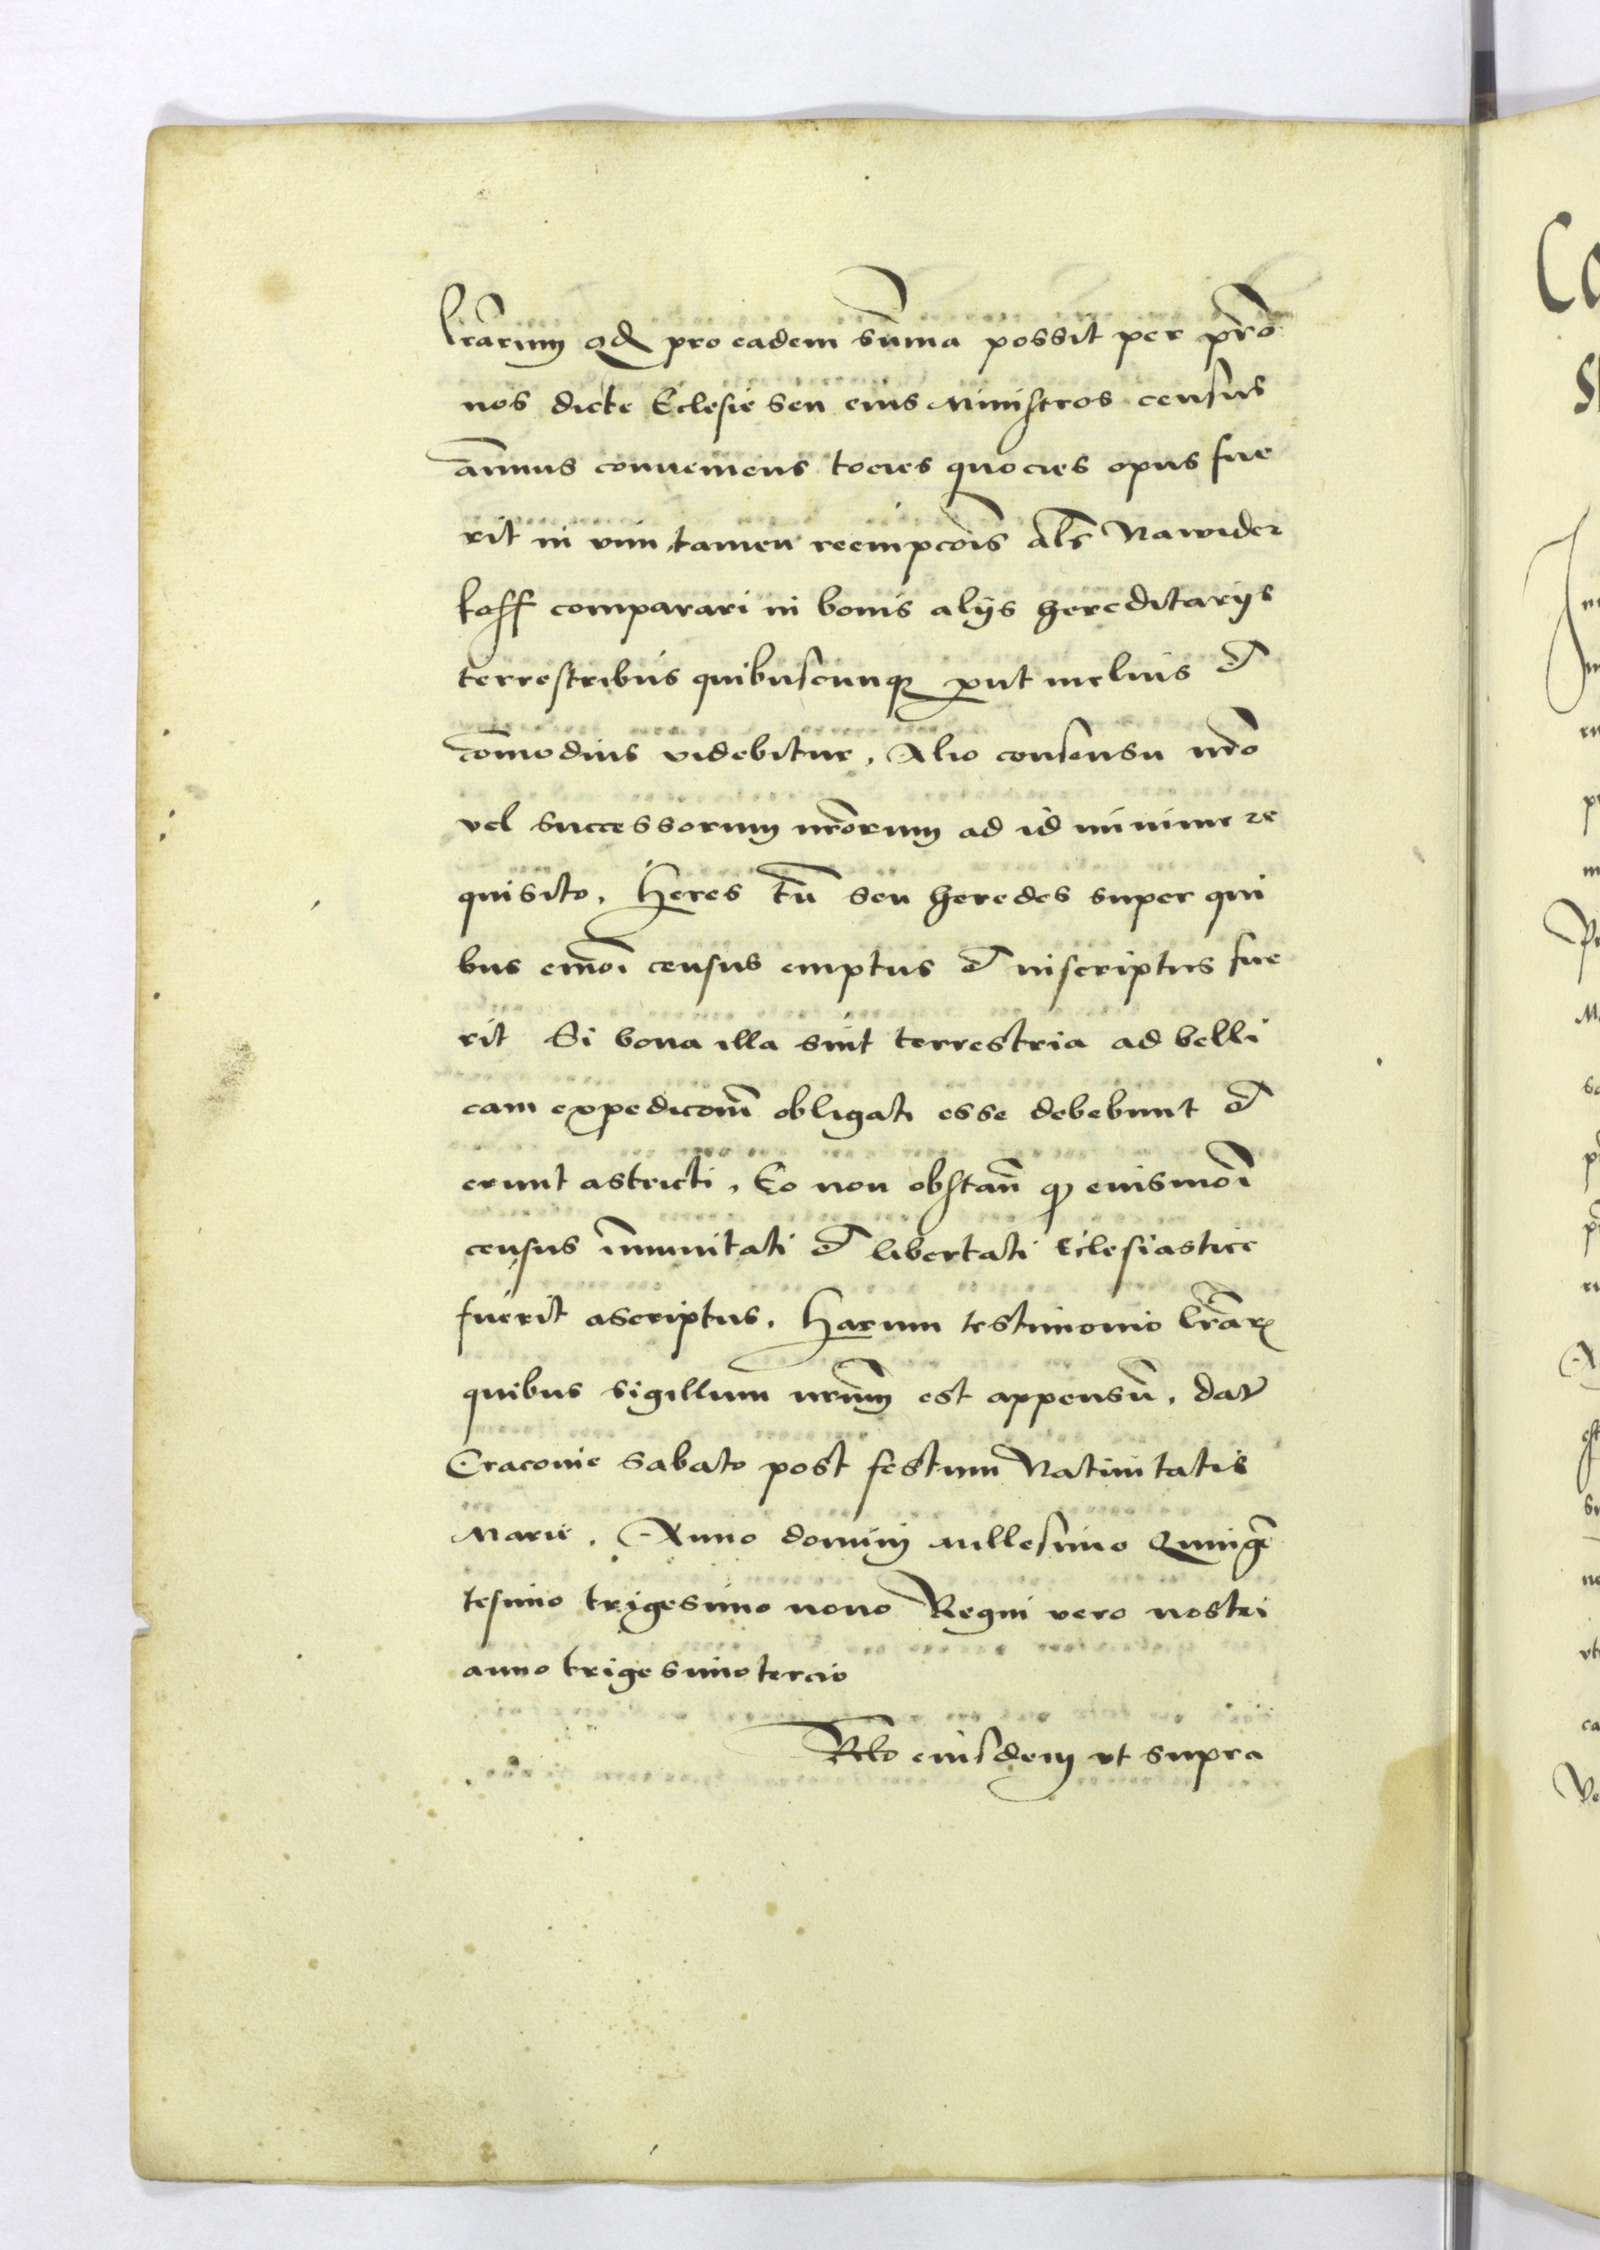 lr̃arum qd pro eadem sũma possit per pr̃o
nos dicte Eclesie seu eius Ministros census
añuus conueniens tocies quocies opus fue
rit in vim tamen reempcõis als̃ Nawider
koff comparari in bonis alijs hereditarijs
terrestribus quibuscunq̃ put melius et
cõmodius videbitur, Alio consensu nr̃o
vel successorum nr̃orum ad id minime re
quisito, Heres tñ seu heredes super qui
bus eiu᷑moi census emptus et inscriptus fue
rit Si bona illa sint terrestria ad belli
cam expedicom̃ obligati esse debebunt et
erunt astricti, Eo non obstañ q̃ eiusmõi
census ĩmunitati et libertati Eclesiastice
fuerit ascriptus, Harum testimonio lr̃ar̃
quibus sigillum nr̃um est appensũ, dat̃
Cracouie Sabato post festum Natiuitatis
Marie, Anno domini Millesimo Quingẽ
tesimo trigesimo nono Regni vero nostri
anno trigesimotercio
Rel̃o eiusdem vt supra